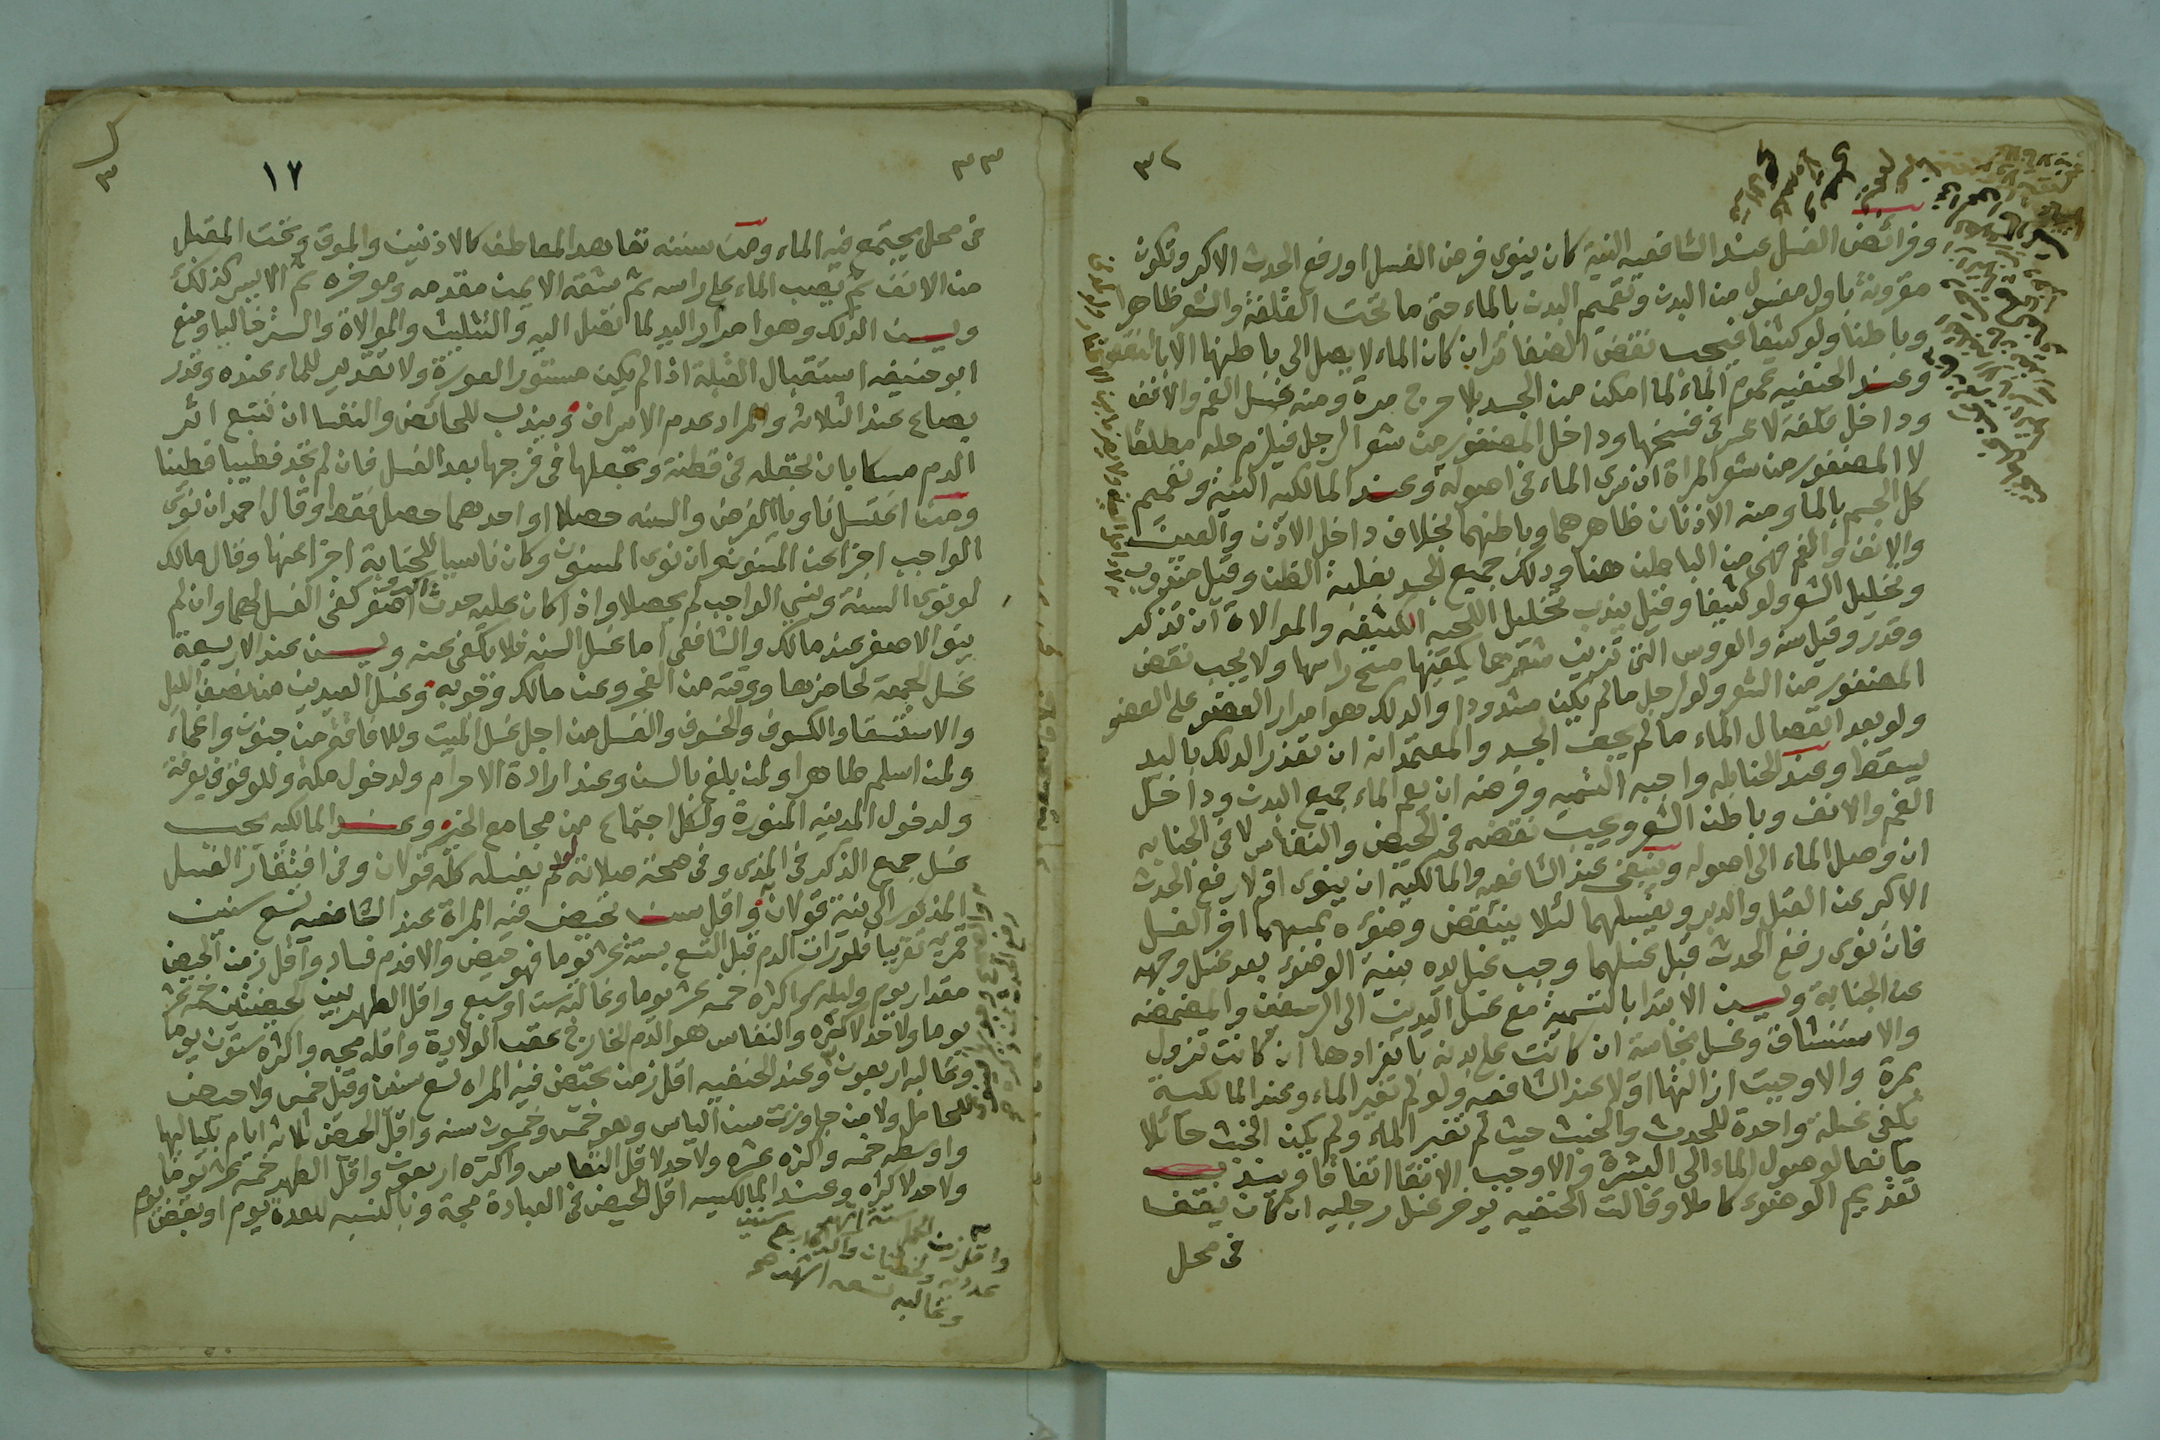 ٣٢
وفرائض الغسل عند الشافعيه النية كان ينوى فرض الغسل او رفع الحدث الاكبر وتكون
مقرونة باول مغسول من البدن وتعميم البدن بالماء حتى ما تحت القلفة والشعر ظاهرا
وباطنا ولو كثيفا فيجب نقض الضفائر ان كان الماء لا يصل الى باطنها الا بالنقض
وعند الحنفيه عموم الماء لما امكن من الجسد بلا حرج مرة ومنه غسل الفم والانف
وداخل قلفة لا عسر فى فسخها وداخل المضفور من شعر الرجل فيلزم حله مطلقا
لا المضفور من شعر المراة ان سرى الماء فى اصوله وعند المالكيه النية وتعميم
كل الجسم بالماء ومنه الاذنان ظاهرهما وباطنهما بخلاف داخل الاذن والعين
والانف والفم فهى من الباطن هنا ودلك جميع الجسد بغلبة الظن وقيل مندوب
وتخليل الشعر ولو كثيفا وقيل يندب تخليل اللحيه الكثيفه والموالاة ان تذكر
وقدر وقيل سنه والعروس التى تزين شعرها يكفيها مسح راسها ولا يجب نقض
المضفور من الشعر ولو لرجل ما لم يكن مشدودا والدلك هو امرار العضو على العضو
ولو بعد انفصال الماء ما لم يجف الجسد والمعتمد انه ان تعذر الدلك باليد
يسقط وعند الحنابله واجبه التسميه وفرضه ان يعم الماء جميع البدن وداخل
الفم والانف وباطن الشعر ويجب نقضه فى الحيض والنفاس لا فى الجنابه
ان وصل الماء الى اصوله وينبغى عند الشافعيه والمالكية ان ينوى اولا رفع الحدث
الاكبر عن القبل والدبر ويغسلهما لئلا ينتقض وضوءه بمسهما اخر الغسل
فان نوى رفع الحدث قبل غسلهما وجب غسل يده بنية الوضوء بعد غسل وجهه
عن الجنابة ويسن الابتدا بالتسمية مع غسل اليدين الى الرسغين والمضمضه
والاستنشاق وغسل نجاسة ان كانت على بدنه بانفرادها ان كانت تزول
بمرة والا وجبت ازالتها اولا عند الشافعيه ولو لم تغير الماء وعند المالكية
تكفى غسلة واحدة للحدث والخبث حيث لم تغير الماء ولم يكن الخبث حائلا
مانعا لوصول الماء الى البشرة والا وجب الانقا اتفاقا ويندب
تقديم الوضوء كاملا وقالت الحنفيه يوخر غسل رجليه ان كان يقف
فى محل
٣٣
١٧
٣
فى محل يجتمع فيه الماء ومن سننه تعاهد المعاطف كالاذنين والموق وتحت المقبل
من الانف ثم يصب الماء على راسه ثم شقه الايمن مقدمه وموخره ثم الايسر كذلك
ويسن الدلك وهو امرار اليد لما تصل اليه والتثليث والموالاة والستر خاليا ومنع
ابو حنيفه استقبال القبلة اذا لم يكن مستور العورة ولا تقدير للماء عنده وقدر
بصاع عند الثلاثه والمراد عدم الاسراف ويندب للحائض والنفسا ان تتبع اثر
الدم مسكا بان تجعله فى قطنة وتجعلها فى فرجها بعد الغسل فان لم تجد فطيبا فطينا
ومن اغتسل ناويا الفرض والسنه حصلا او احدهما حصل فقط وقال احمد ان نوى
الواجب اجزا عن المسنون وان نوى المسنون وكان ناسيا للجنابة اجزا عنها وقال مالك
لو نوى السنة ونسى الواجب لم يحصلا واذا كان عليه حدث اصغر كفى الغسل لهما وان لم
ينو الاصغر عند مالك والشافعى اما غسل السنه فلا يكفى عنه ويسن عند الاربعة
غسل الجمعة لحاضرها ووقته من الفجر وعند مالك وقوبه وغسل العيدين من نصف الليل
والاستسقا والكسوف والخسوف والغسل من اجل غسل الميت وللافاقة من جنون واغماء
ولمن اسلم طاهرا ولمن بلغ بالسن وعند ارادة الاحرام ولدخول مكة وللوقوف بعرفة
ولدخول المدينه المنورة ولكل اجتماع من مجامع الخير وعند المالكيه يجب
غسل جميع الذكر فى المذى وفى صحة صلاته لو لم يغسله كله قولان وفى افتقار الغسل
المذكور الى نية قولان واقل سن تحيض فيه المراة عند الشافعيه تسع سنين
قمريه تقريبا فلو رات الدم قبل التسع بستة عشر يوما فهو حيض والا فدم فساد واقل زمن الحيض
مقدار يوم وليلة واكثره خمسه عشر يوما وغالبه ست او سبع واقل الطهر بين الحيضتين خمسة عشر
يوما ولا حد لاكثره والنفاس هو الدم الخارج عقب الولادة واقله مجه واكثره ستون يوما
وغالبه اربعون وعند الحنفيه اقل زمن تحيض فيه المراه تسع سنين وقيل خمس ولا حيض
للحامل ولا من جاوزت سن الياس وهو خمس وخمسون سنه واقل الحيض ثلاثه ايام بلياليها
واوسطه خمسه واكثره عشره ولا حد لاقل النفاس واكثره اربعون واقل الطهر خمسة عشر يوما
ولا حد لاكثره وعند المالكيه اقل الحيض فى العبادة مجة وبالنسبه للعدة يوم او بعض يوم
واقل زمن الحمل ستة اشهر
عدديه ولحظتان واكثره اربع سنين
وغالبه تسعه اشهر